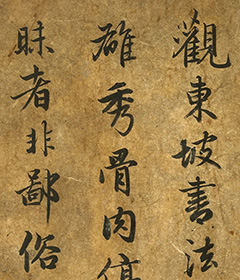 觀東坡書法
雄秀骨肉停
昧者非鄙俗